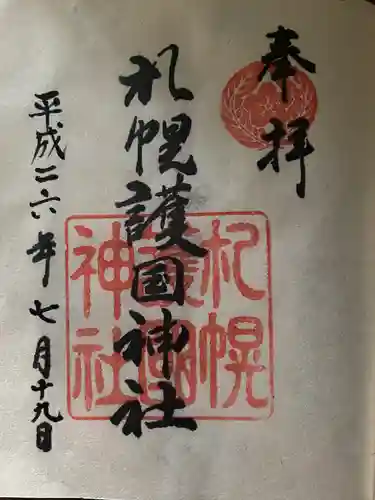 奉拝
札幌護国神社
平成二六年七月十九日
札幌
護國
神社